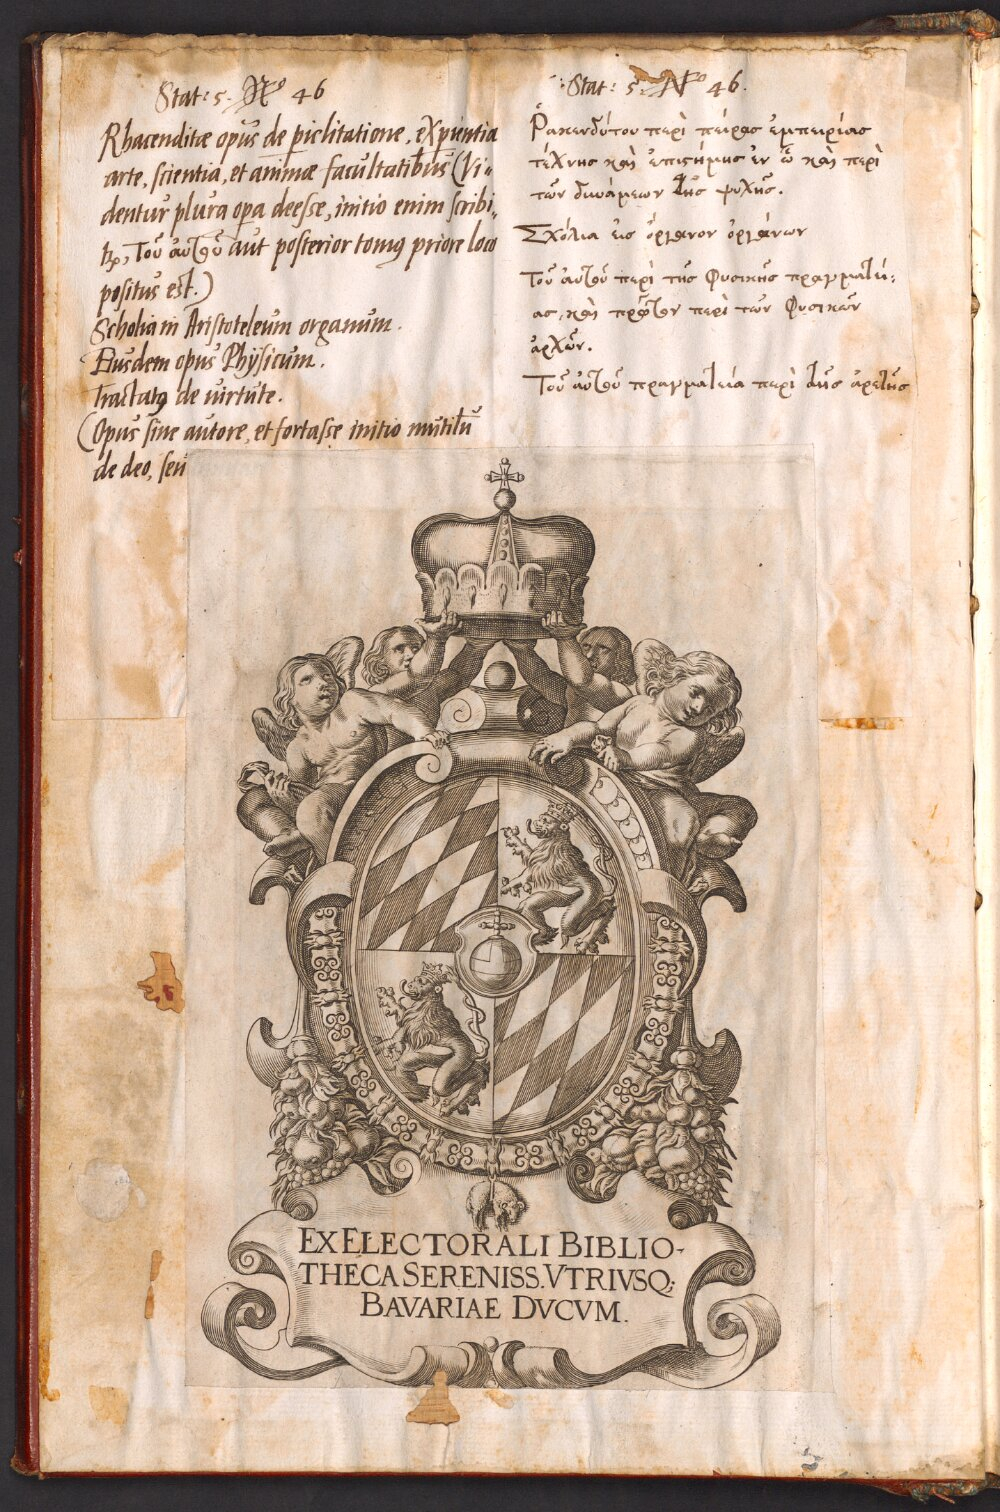 Stat: 5. No 46
Rhacenditæ opus de piclitatione, expientia
arte, scientia, et animæ facultatibus (Vi-
dentur plura opa deesse, initio enim scribi-
tr, Τοῦ αὐτοῦ aut posterior tomus priore loco
positus est.)
Scholia in Aristoteleum organum.
Eiusdem opus Physicum.
Tractatus de virtute.
(Opus sine autore, et fortasse initio mutilū
de deo, seu
Stat: 5. No 46.
Ῥακενδύτου περὶ πείρας ἐμπειρίας
τέχνης καὶ ἐπιστήμης ἐν ᾧ καὶ περὶ
τῶν δυνάμεων τῆς ψυχῆς.
Σχόλια εἰς ὄργανον ὀργάνων
Τοῦ αὐτοῦ περὶ τῆς φυσικῆς πραγματεί-
ας, καὶ πρῶτον περὶ τῶν φυσικῶν
ἀρχῶν.
Τοῦ αὐτοῦ πραγματεία περὶ τῆς ἀρετῆς
EX ELECTORALI BIBLIO-
THECA SERENISS. VTRIVSQ;
BAVARIAE DVCVM.